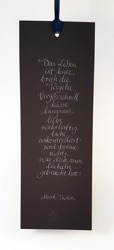 Das Leben
ist kurz,
brich die
Regeln
Vergib schnell
küsse
langsam,
liebe
wahrhaftig
lache
unkontrolliert
und bereue
nichts,
was dich zum
Lächeln
gebracht hat.
Mark Twain